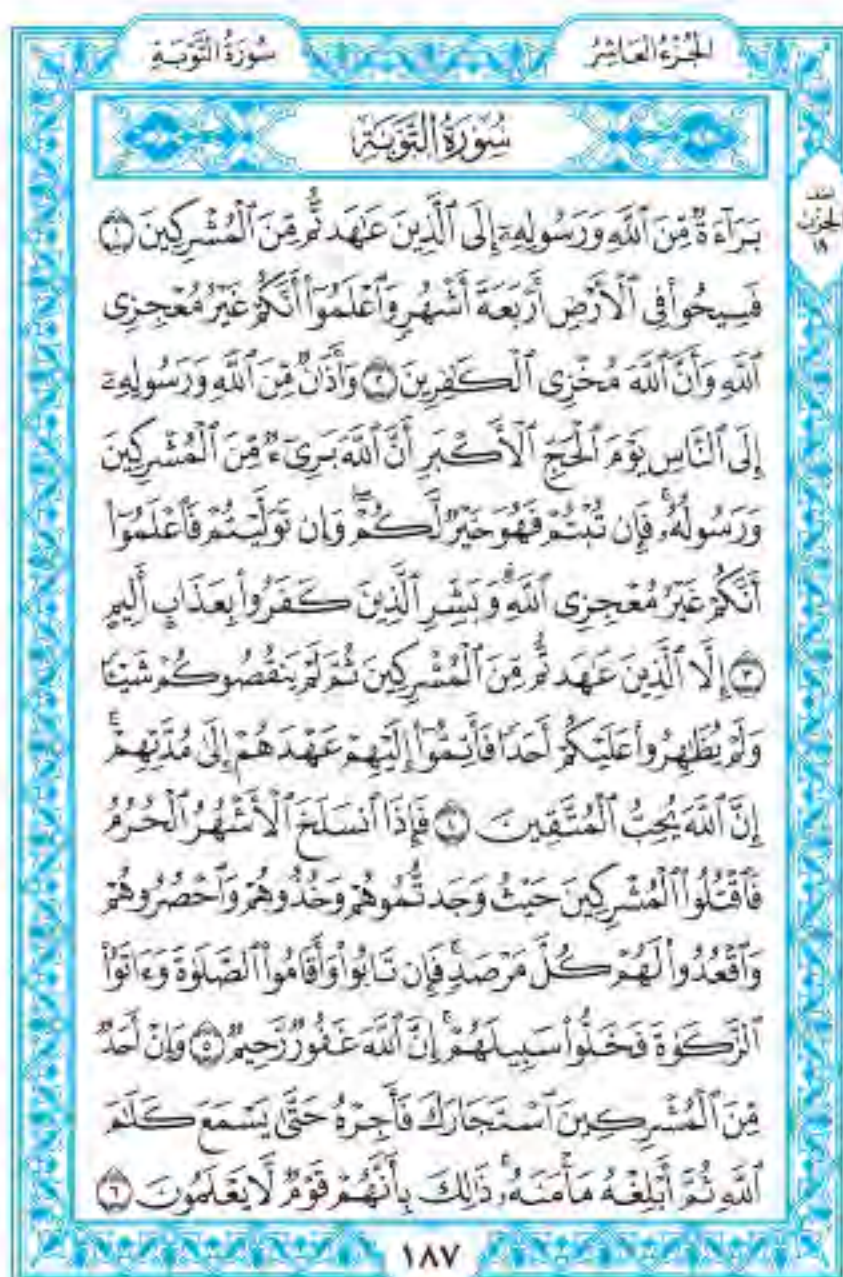 سُورَةُ التَّوْبَةِ
الجُزْءُ العَاشِرُ
سُورَةُ التَّوْبَةِ
الحِزْب
١٩
بَرَآءَةٌ مِّنَ ٱللَّهِ وَرَسُولِهِۦٓ إِلَى ٱلَّذِينَ عَٰهَدتُّم مِّنَ ٱلْمُشْرِكِينَ ١
فَسِيحُوا۟ فِى ٱلْأَرْضِ أَرْبَعَةَ أَشْهُرٍ وَٱعْلَمُوٓا۟ أَنَّكُمْ غَيْرُ مُعْجِزِى
ٱللَّهِ وَأَنَّ ٱللَّهَ مُخْزِى ٱلْكَٰفِرِينَ ٢ وَأَذَٰنٌ مِّنَ ٱللَّهِ وَرَسُولِهِۦٓ
إِلَى ٱلنَّاسِ يَوْمَ ٱلْحَجِّ ٱلْأَكْبَرِ أَنَّ ٱللَّهَ بَرِىٓءٌ مِّنَ ٱلْمُشْرِكِينَ
وَرَسُولُهُۥ ۚ فَإِن تُبْتُمْ فَهُوَ خَيْرٌ لَّكُمْ ۖ وَإِن تَوَلَّيْتُمْ فَٱعْلَمُوٓا۟
أَنَّكُمْ غَيْرُ مُعْجِزِى ٱللَّهِ ۗ وَبَشِّرِ ٱلَّذِينَ كَفَرُوا۟ بِعَذَابٍ أَلِيمٍ
٣ إِلَّا ٱلَّذِينَ عَٰهَدتُّم مِّنَ ٱلْمُشْرِكِينَ ثُمَّ لَمْ يَنقُصُوكُمْ شَيْـًٔا
وَلَمْ يُظَٰهِرُوا۟ عَلَيْكُمْ أَحَدًا فَأَتِمُّوٓا۟ إِلَيْهِمْ عَهْدَهُمْ إِلَىٰ مُدَّتِهِمْ ۚ
إِنَّ ٱللَّهَ يُحِبُّ ٱلْمُتَّقِينَ ٤ فَإِذَا ٱنسَلَخَ ٱلْأَشْهُرُ ٱلْحُرُمُ
فَٱقْتُلُوا۟ ٱلْمُشْرِكِينَ حَيْثُ وَجَدتُّمُوهُمْ وَخُذُوهُمْ وَٱحْصُرُوهُمْ
وَٱقْعُدُوا۟ لَهُمْ كُلَّ مَرْصَدٍ ۚ فَإِن تَابُوا۟ وَأَقَامُوا۟ ٱلصَّلَوٰةَ وَءَاتَوُا۟
ٱلزَّكَوٰةَ فَخَلُّوا۟ سَبِيلَهُمْ ۚ إِنَّ ٱللَّهَ غَفُورٌ رَّحِيمٌ ٥ وَإِنْ أَحَدٌ
مِّنَ ٱلْمُشْرِكِينَ ٱسْتَجَارَكَ فَأَجِرْهُ حَتَّىٰ يَسْمَعَ كَلَٰمَ
ٱللَّهِ ثُمَّ أَبْلِغْهُ مَأْمَنَهُۥ ۚ ذَٰلِكَ بِأَنَّهُمْ قَوْمٌ لَّا يَعْلَمُونَ ٦
١٨٧